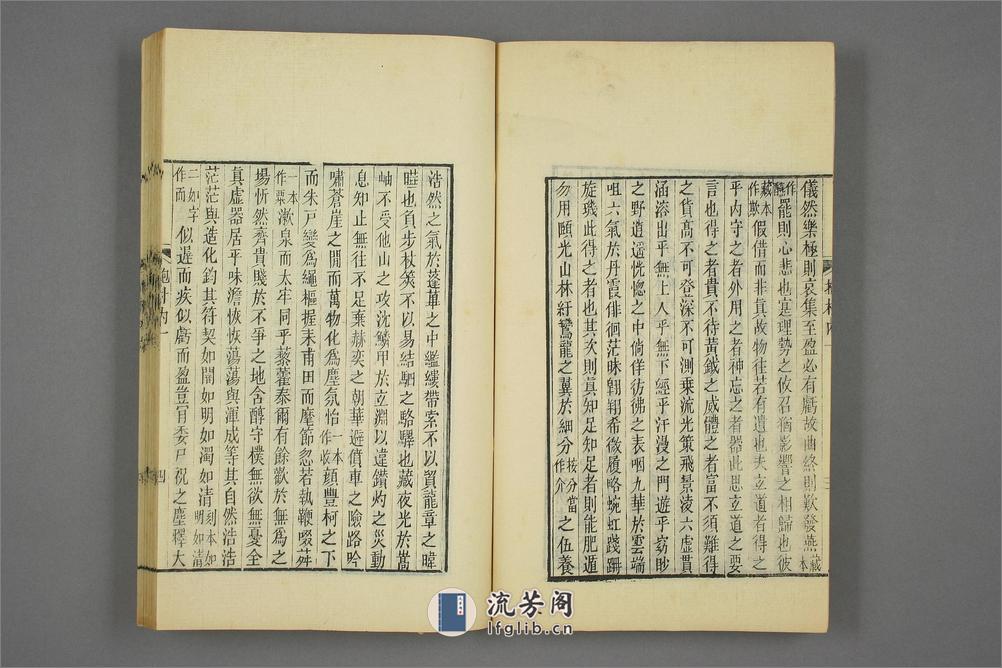 儀然樂極則哀集至盈必有虧故曲終則歎發燕藏本
作醼罷則心悲也寔理勢之攸召猶影響之相歸也彼
藏本作欺假借而非真故物往若有遺也夫立道者得之
乎内守之者外用之者神忘之者器此思立道之要
言也得之者貴不待黃鉞之威體之者富不須難得
之貨高不可登深不可測乗流光策飛景淩六虛貫
涵溶出乎無上入乎無下經乎汗漫之門遊乎窈眇
之野逍遙恍惚之中倘佯彷彿之表咽九華於雲端
咀六氣於丹霞徘徊茫昧翱翔希微履略蜿虹踐跚
旋璣此得之者也其次則真知足知足者則能肥遁
勿用頤光山林紆鸞龍之翼於細分按分當作介之伍養
浩然之氣於蓬蓽之中繿縷帶索不以貿龍章之暐
曄也負步杖筴不以易結駟之駱驛也藏夜光於嵩
岫不受他山之攻沈鱗甲於立淵以違鑽灼之災動
息知止無往不足棄赫奕之朝華避僨車之險路吟
嘯蒼崖之閒而萬物化為塵氛怡一本作收顏豐柯之下
而朱戸變為繩樞握耒甫田而麾節忽若執鞭啜荈
一本作粟漱泉而太牢同乎藜藿泰爾有餘歡於無為之
場忻然齊貴賤於不爭之地含醇守樸無欲無憂全
真虛器居乎味澹恢恢蕩蕩與渾成等其自然浩浩
茫茫與造化鈞其符契如闇如明如濁如清刻本如
二如字作而明如清似遲而疾似虧而盈豈肯委尸祝之塵釋大
抱朴内一
三
抱朴内
四
流芳阁
lfglib.cn